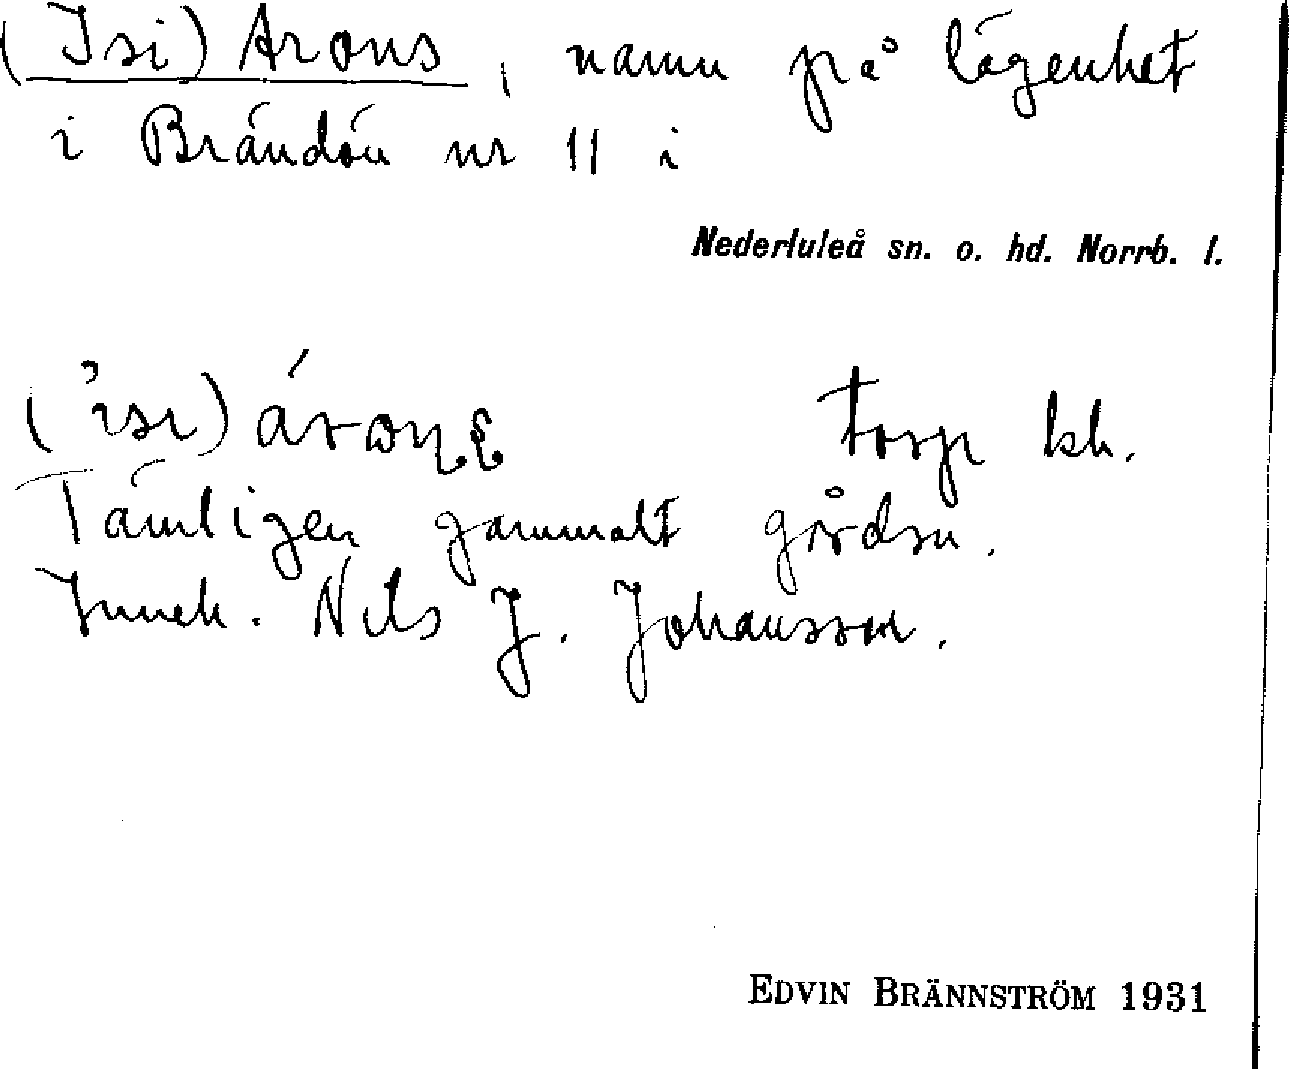 (Isi) Arons, namn på lägenhet
i Brändön nr 11 i
Nederluleå sn. o. hd. Norrb. l.
(isi) áronș Torp kh.
Tämligen gammalt gårdsn.
Inneh. Nils J. Johansson.
EDVIN BRÄNNSTRÖM 1931